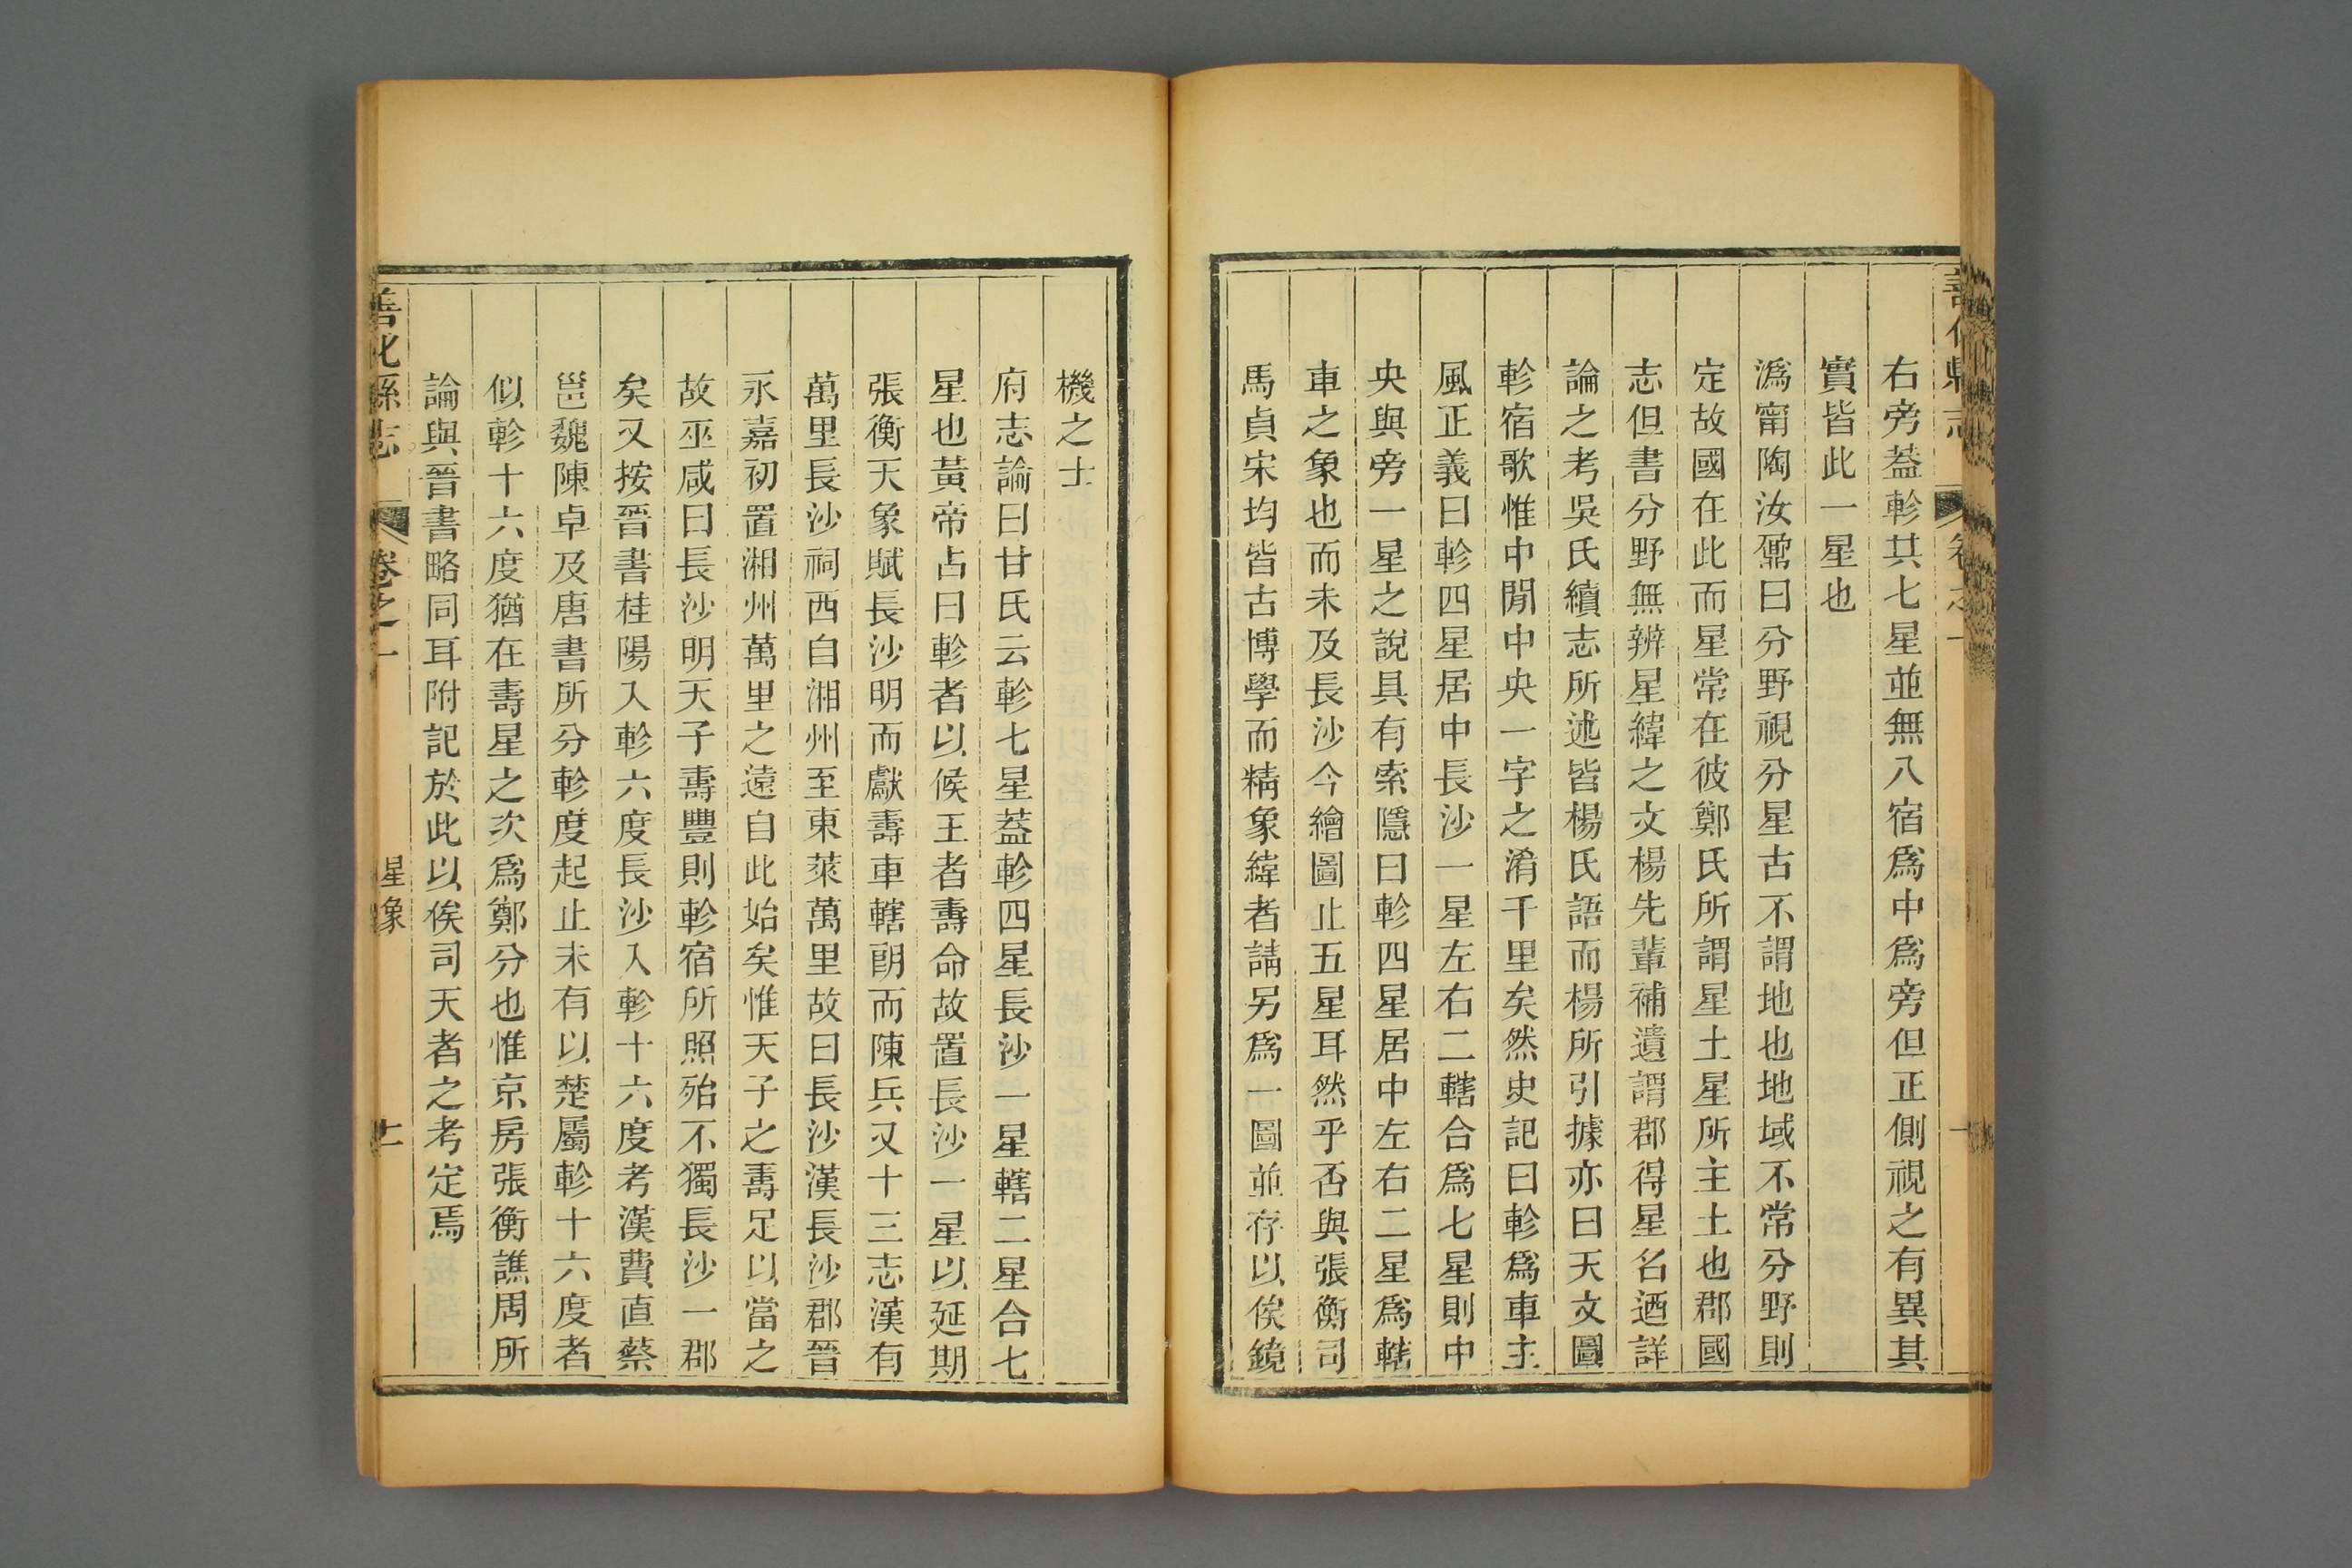 善化縣志 卷之一
右旁葢軫共七星並無八宿爲中爲旁但正側視之有異其
實皆此一星也
潙甯陶汝鼐曰分野視分星古不謂地也地域不常分野則
定故國在此而星常在彼鄭氏所謂星土星所主土也郡國
志但書分野無辨星緯之文楊先輩補遺謂郡得星名迺詳
論之考吳氏續志所述皆楊氏語而楊所引據亦曰天文圖
軫宿歌惟中間中央一字之淆千里矣然史記曰軫爲車主
風正義曰軫四星居中長沙一星左右二轄合爲七星則中
央與旁一星之說具有索隱曰軫四星居中左右二星爲轄
車之象也而未及長沙今繪圖止五星耳然乎否與張衡司
馬貞宋均皆古博學而精象緯者請另爲一圖並存以俟鏡
機之士
府志論曰甘氏云軫七星葢軫四星長沙一星轄二星合七
星也黃帝占曰軫者以候王者壽命故置長沙一星以延期
張衡天象賦長沙明而獻壽車轄朗而陳兵又十三志漢有
萬里長沙祠西自湘州至東萊萬里故曰長沙漢長沙郡晉
永嘉初置湘州萬里之遠自此始矣惟天子之壽足以當之
故巫咸曰長沙明天子壽豐則軫宿所照殆不獨長沙一郡
矣又按晉書桂陽入軫六度長沙入軫十六度考漢費直蔡
邕魏陳卓及唐書所分軫度起止未有以楚屬軫十六度者
似軫十六度猶在壽星之次爲鄭分也惟京房張衡譙周所
論與晉書略同耳附記於此以俟司天者之考定焉
善化縣志 卷之一 星像